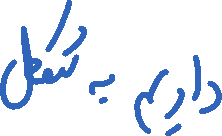 داریم به شکل